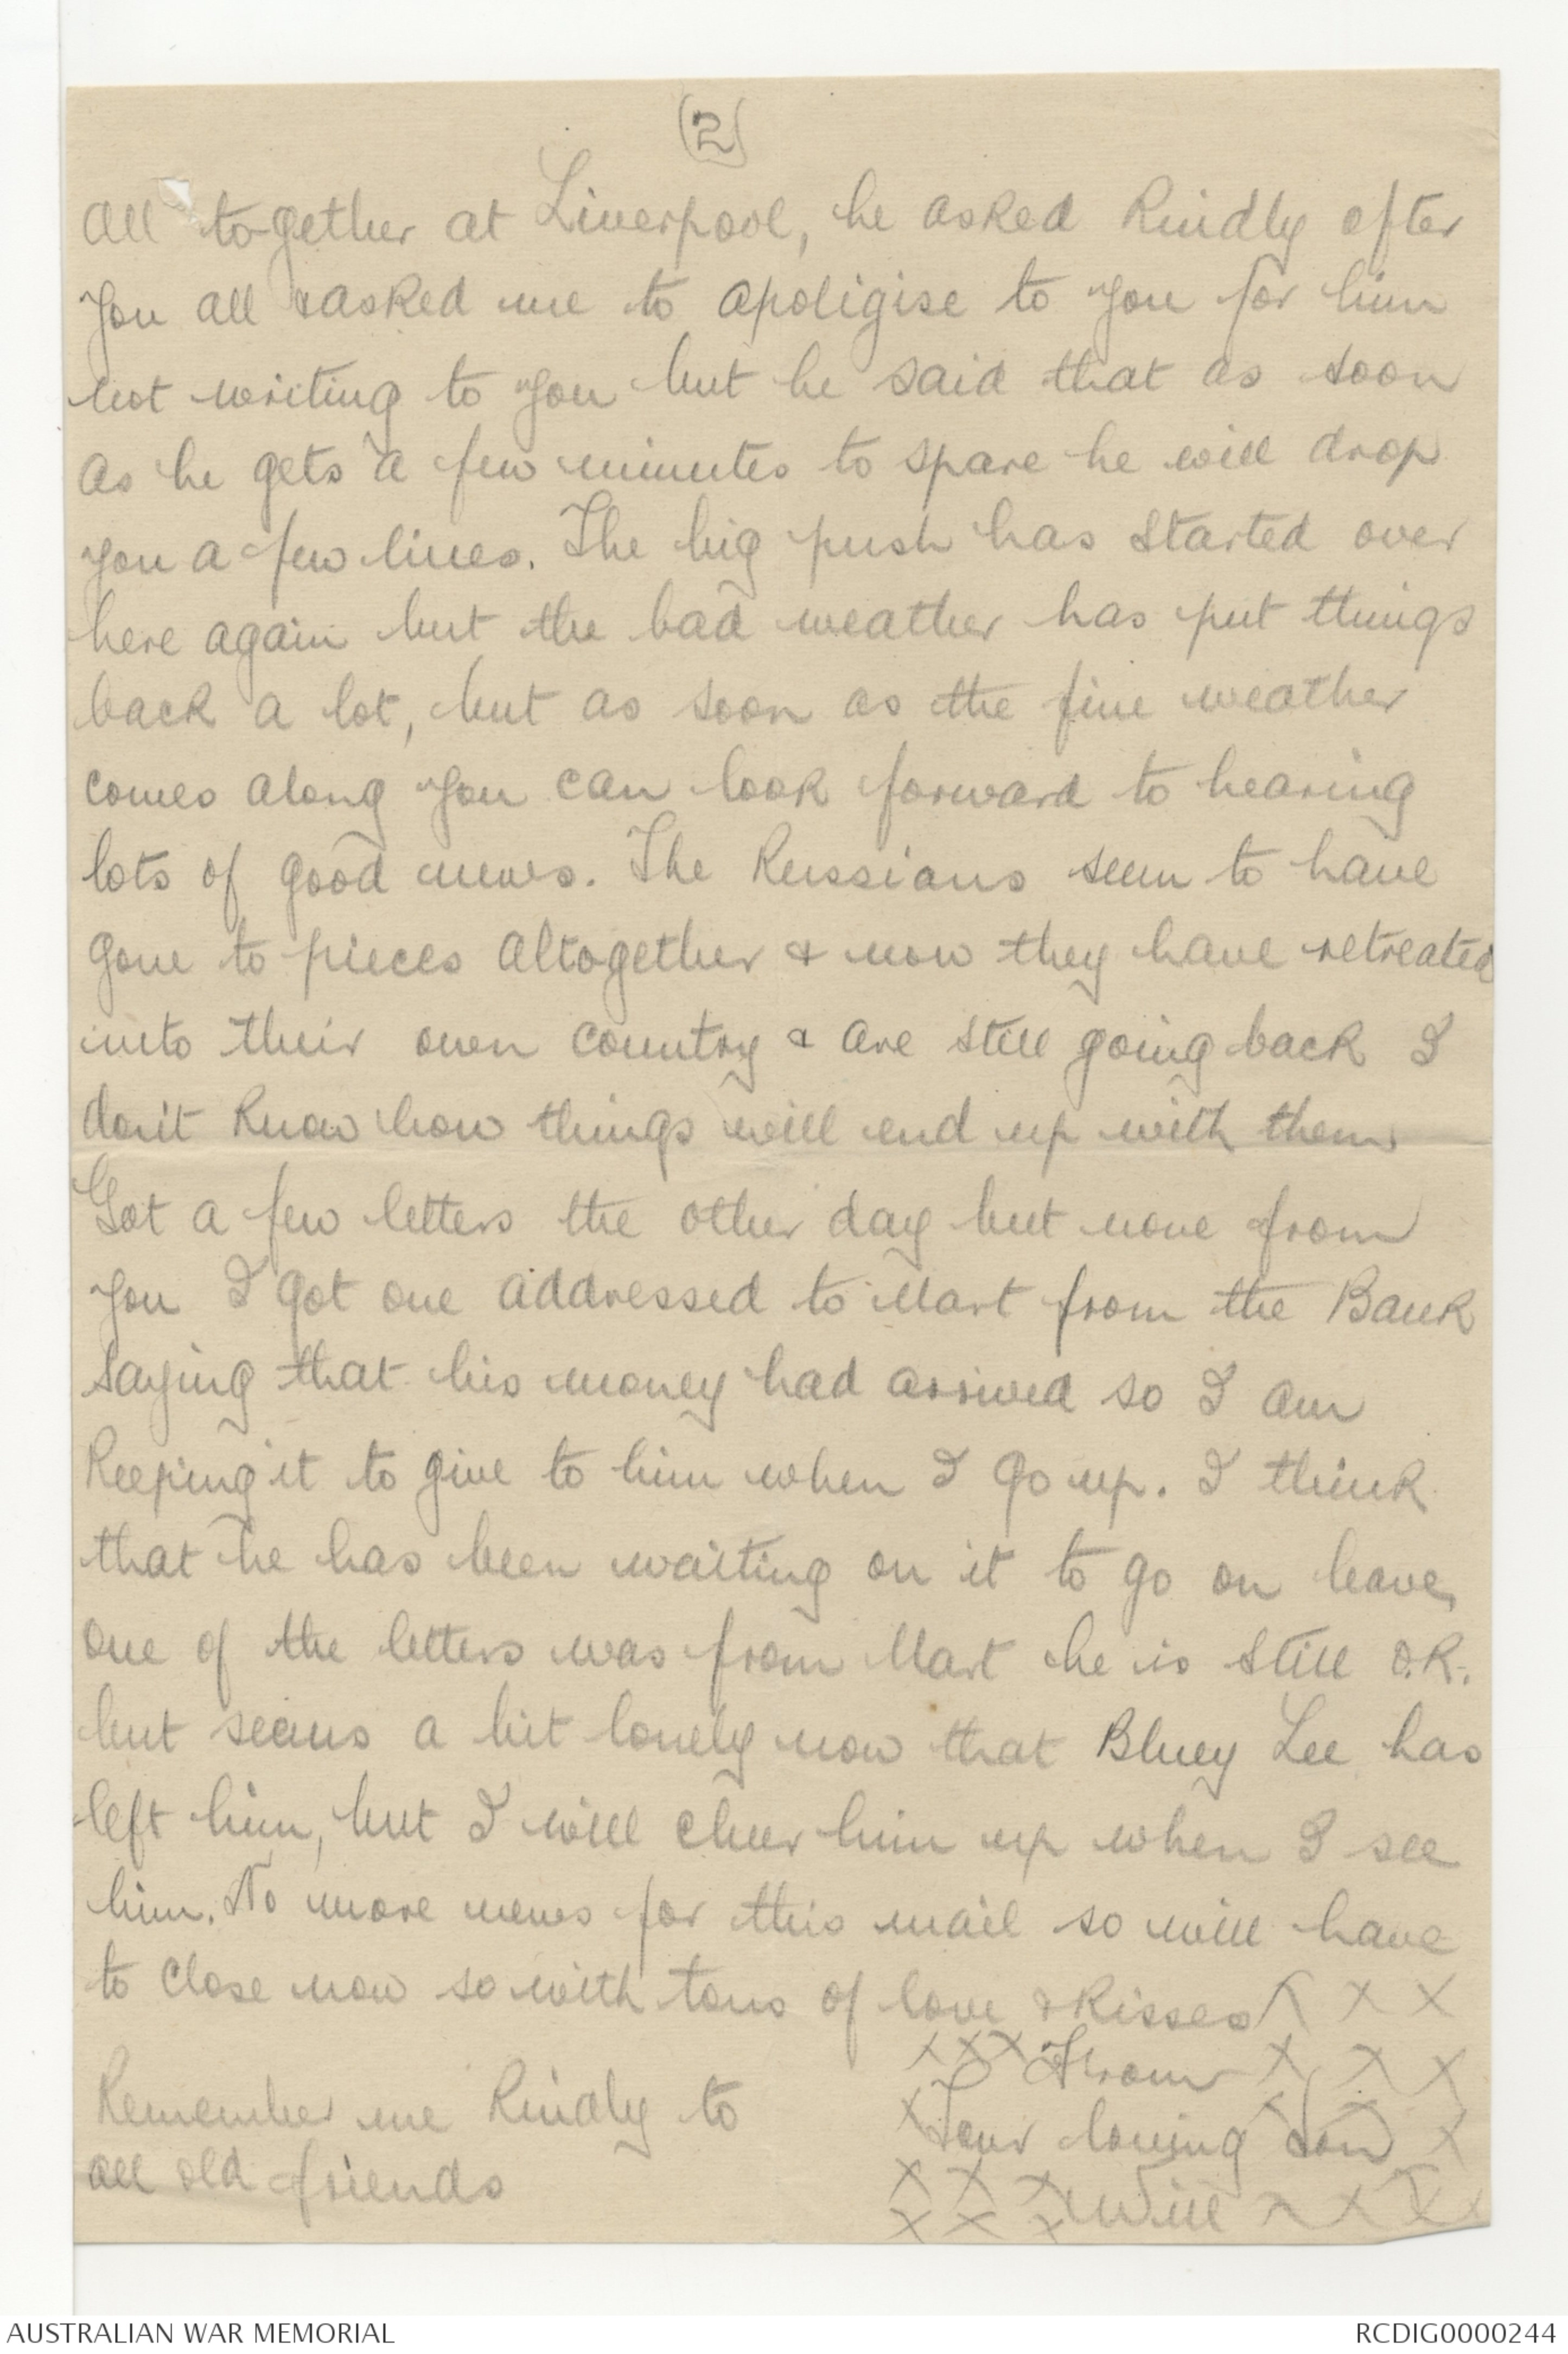 (2)
All together at Liverpool, he asked kindly after
you all & asked me to apoligise to you for him
not writing to you but he said that as soon
as he gets a few minutes to spare he will drop
you a few lines. The big push has started over
here again but the bad weather has put things
back a lot, but as soon as the fine weather
comes along you can look forward to hearing
lots of good news. The Russians seem to have
gone to pieces altogether & now they have retreated
into their own country & are still going back I
don't know how things will end up with them
Got a few letters the other day but none from
you I got one addressed to Mart from the Bank
saying that his money had arrived so I am
keeping it to give to him when I go up. I think
that he has been waiting on it to go on leave,
one of the letters was from Mart he is still O.K.
but seems a bit lonely now that Bluey Lee has
left him, but I will cheer him up when I see
him. No more news for this mail so will have
to close now so with tons of love & kisses X X X
X X X From X X X
Remember me kindly to
X Your loving Son X
all old friends
X X X Will X X X X
X X X
AUSTRALIAN WAR MEMORIAL
RCDIG0000244